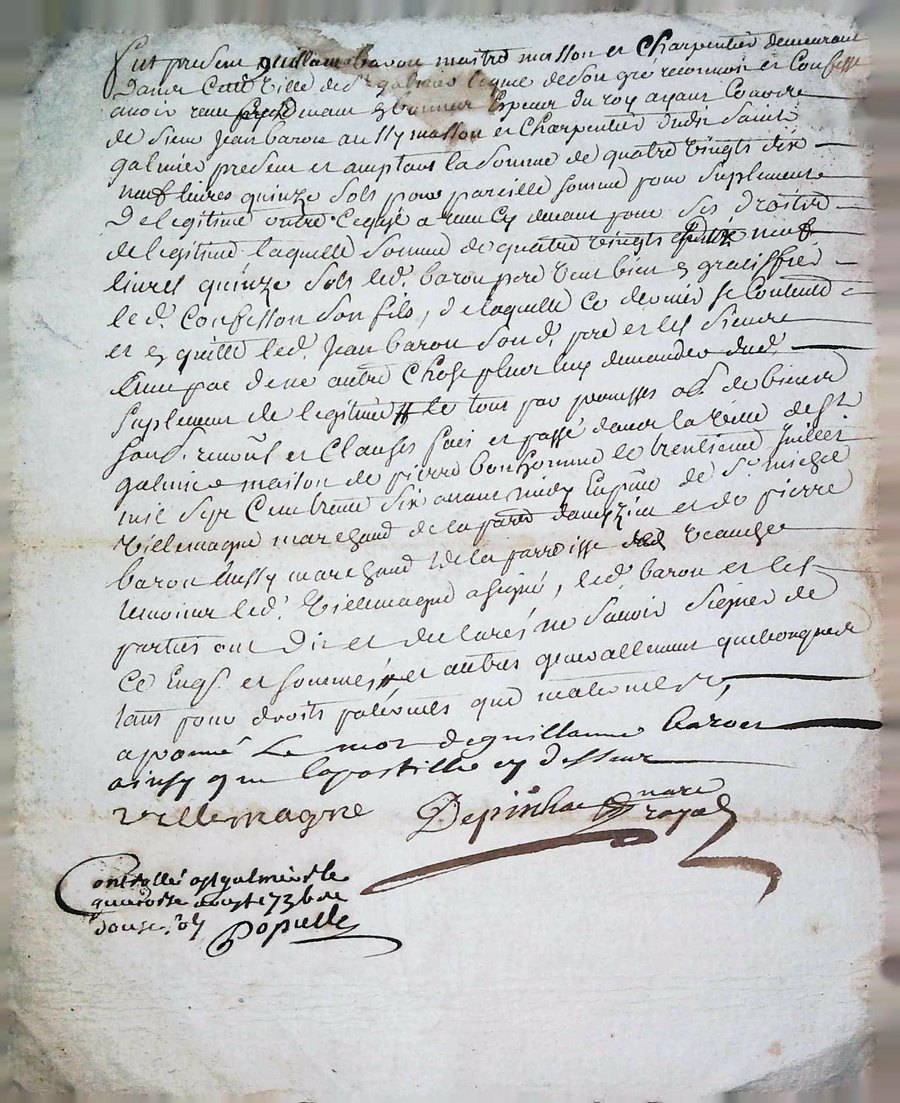 Fut present guillaume baron maitre masson et Charpentier demeurant
Dans Cette Ville de St galmier lequel de son gré reconnoit et Confesse
avoir receu presentement en bonnes Especes du roy ayant Cour de
de sieur Jean baron aussy masson et Charpentier dudit Saint
galmier present et acceptant la Somme de quatre vingts dix
neuf livres quinze sols pour pareille somme pour suplement
de legitime outre ce qu'il a receu cy devant pour ses droits
de legitime laquelle somme de quatre vingts dix neuf
livres quinze sols led. baron pere veut bien en gratiffier
led. Confesson son fils, de laquelle ce dernier se Contente
et en quitte led. Jean baron son d. pere et les siens
Sans pac de ne autre Chose plus luy demander dud.
suplement de legitime # le tout par promesses obl. de biens
sous. renons et Clauses fait et passé dans la Ville de St
galmier maison de pierre bonhomme le trentieme juillet
mil sept Cent trente six avant midy En pnce de Sr michel
Villemagne marchand de la parr. et de pierre
baron aussy marchand de la parroisse de Veauche
temoins led. Villemagne a signé, led. baron et les
parties ont dit et declarés ne savoir signer de
ce Enqs. et sommés # et autres generallement quelconques
tant pour droits paternels que maternels,
aponné Le mot de guillaume baron
ainsy que l'apostille cy dessus
villemagne Depinhac nore
royal
Controllé a St galmier le
quatorse aoust 1736 Re
douse sols Populle